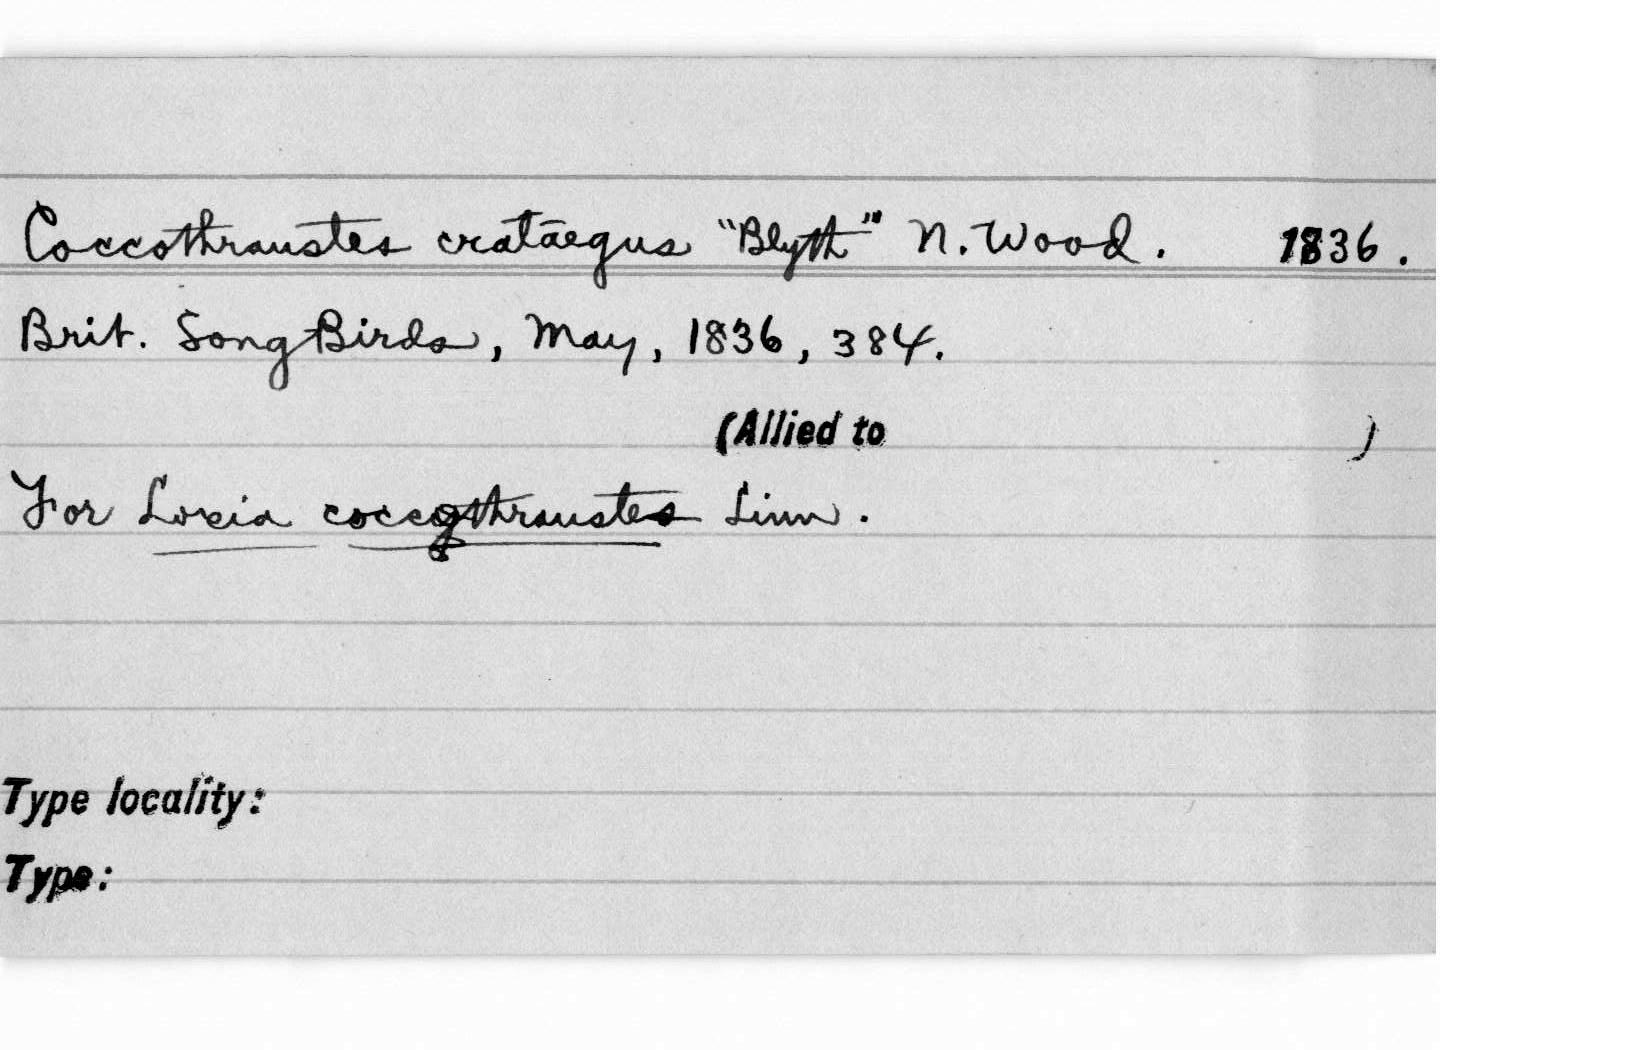 Coccothraustes crataegus "Blyth" N. Wood. 1836.
Brit. Song Birds, May, 1836, 384.
(Allied to )
For Loxia coccothraustes Linn.
Type locality:
Type: